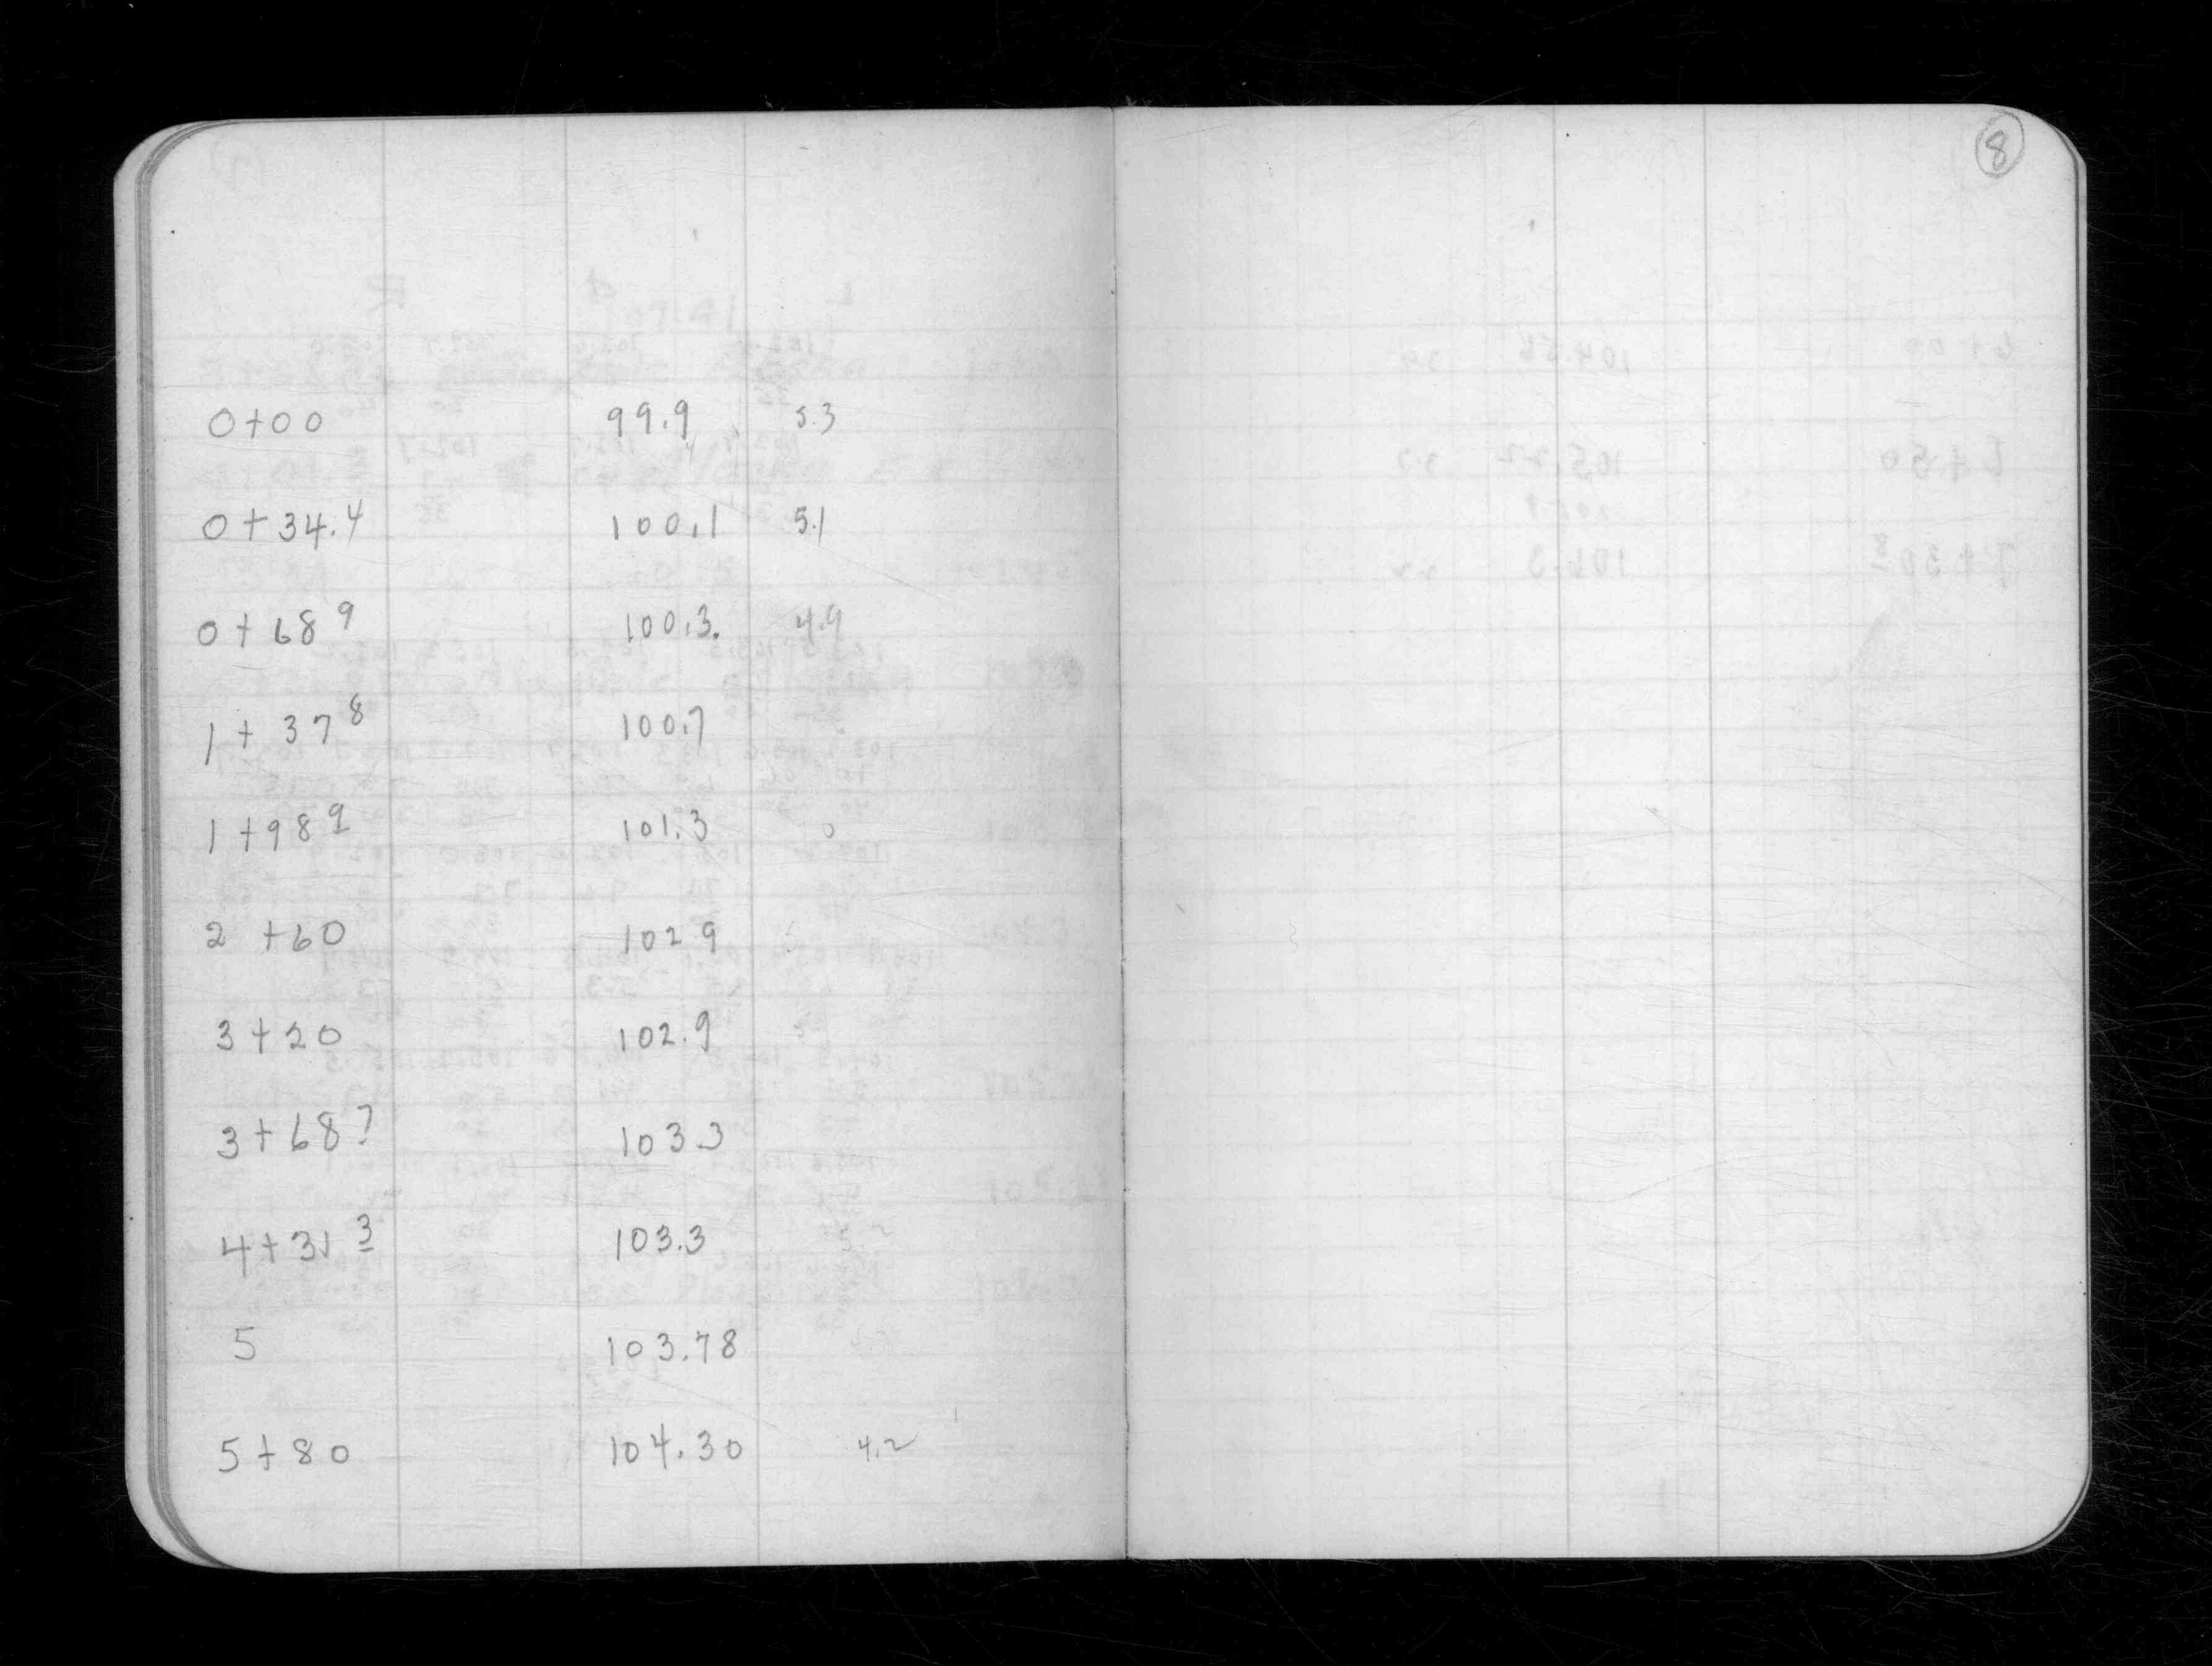 8
0+00 99.9 5.3
0+34.4 100.1 5.1
0+68 9 100.3. 4.9
1+37 8 100.7
1+98 9 101.3 0
2 +60 102 9
3+20 102.9
3+68 7 103.3
4+31 3 103.3
5 103.78
5+80 104.30 4.2